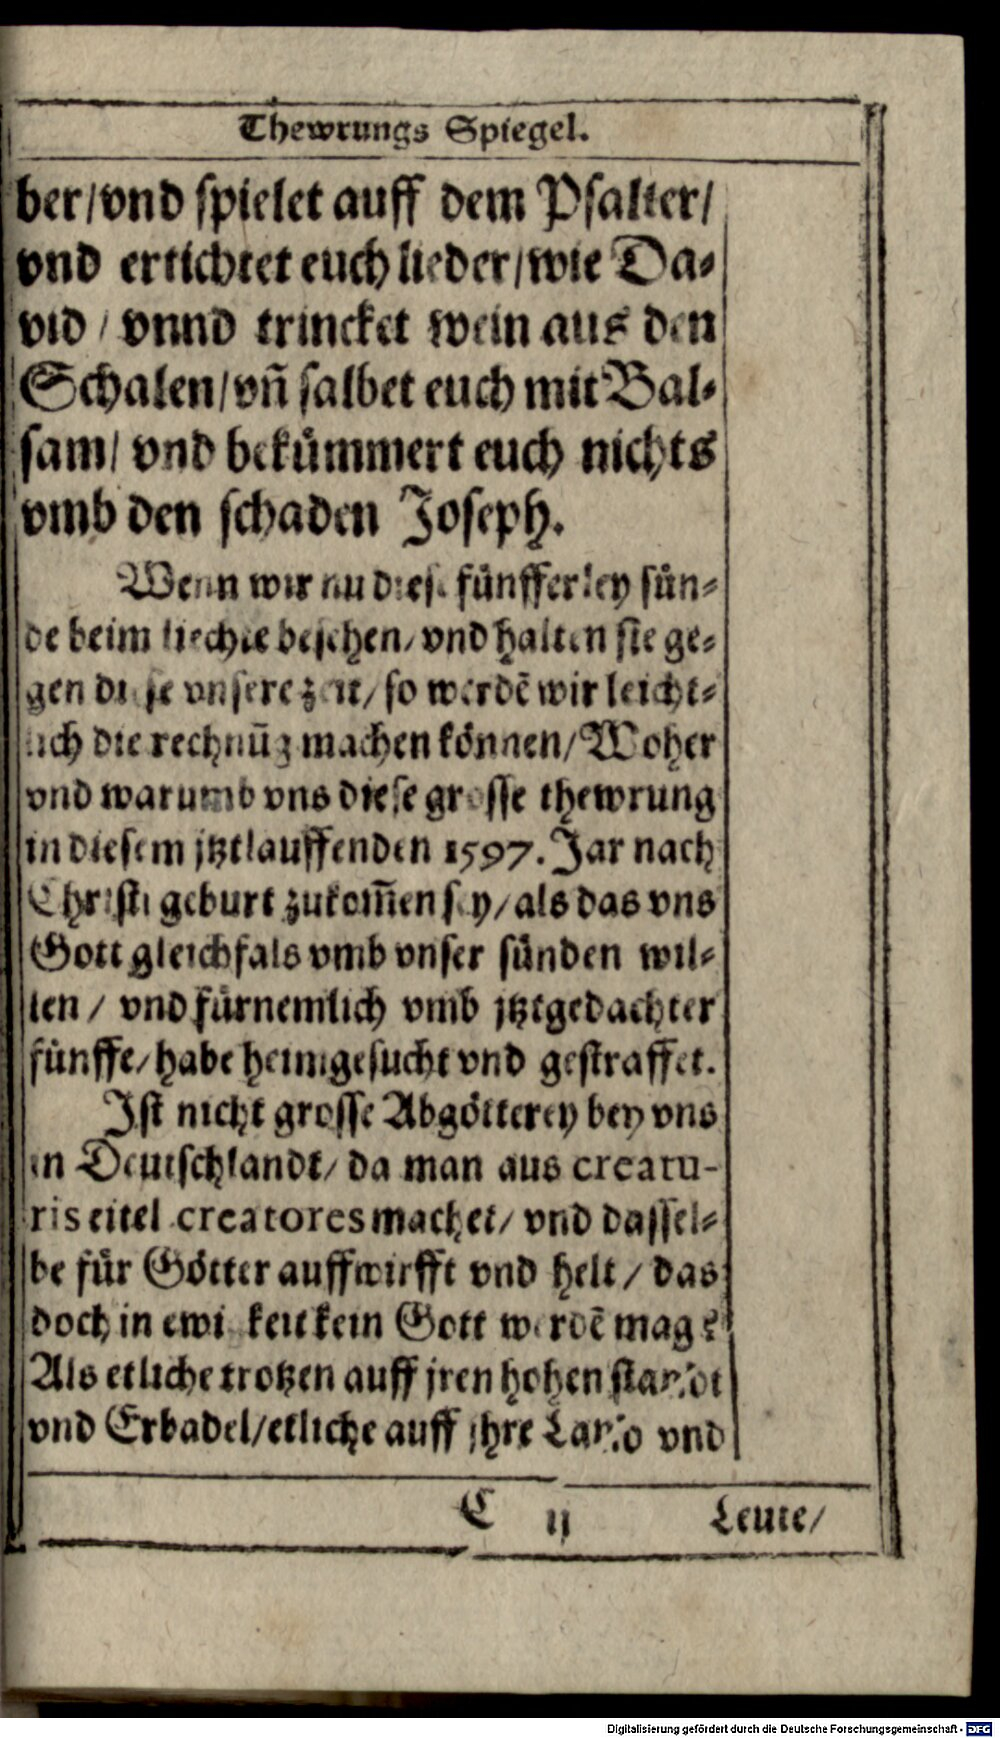 Thewrungs Spiegel.
ber/vnd spielet auff dem Psalter/
vnd ertichtet euch lieder/wie Da⸗
vid / vnnd trincket wein aus den
Schalen/vñ salbet euch mit Bal⸗
sam/ vnd bekůmmert euch nichts
vmb den schaden Joseph.
Wenn wir nu diese fůnfferley sůn⸗
de beim liechte besehen/ vnd halten sie ge⸗
gen diese vnsere zeit/ so werdẽ wir leicht⸗
lich die rechnũg machen kőnnen/ Woher
vnd warumb vns diese grosse thewrung
in diesem jtztlauffenden 1597. Jar nach
Christi geburt zukom̃en sey/ als das vns
Gott gleichfals vmb vnser sůnden wil⸗
len / vnd fůrnemlich vmb jtztgedachter
fůnffe/ habe heimgesucht vnd gestraffet.
Jst nicht grosse Abgőtterey bey vns
in Deutschlandt/ da man aus creatu-
ris eitel creatores machet/ vnd dassel⸗
be fůr Gőtter auffwirfft vnd helt/ das
doch in ewigkeit kein Gott werdẽ mag?
Als etliche trotzen auff jren hohen standt
vnd Erbadel/etliche auff jhre Land vnd
C ij Leute/
Digitalisierung gefördert durch die Deutsche Forschungsgemeinschaft - DFG